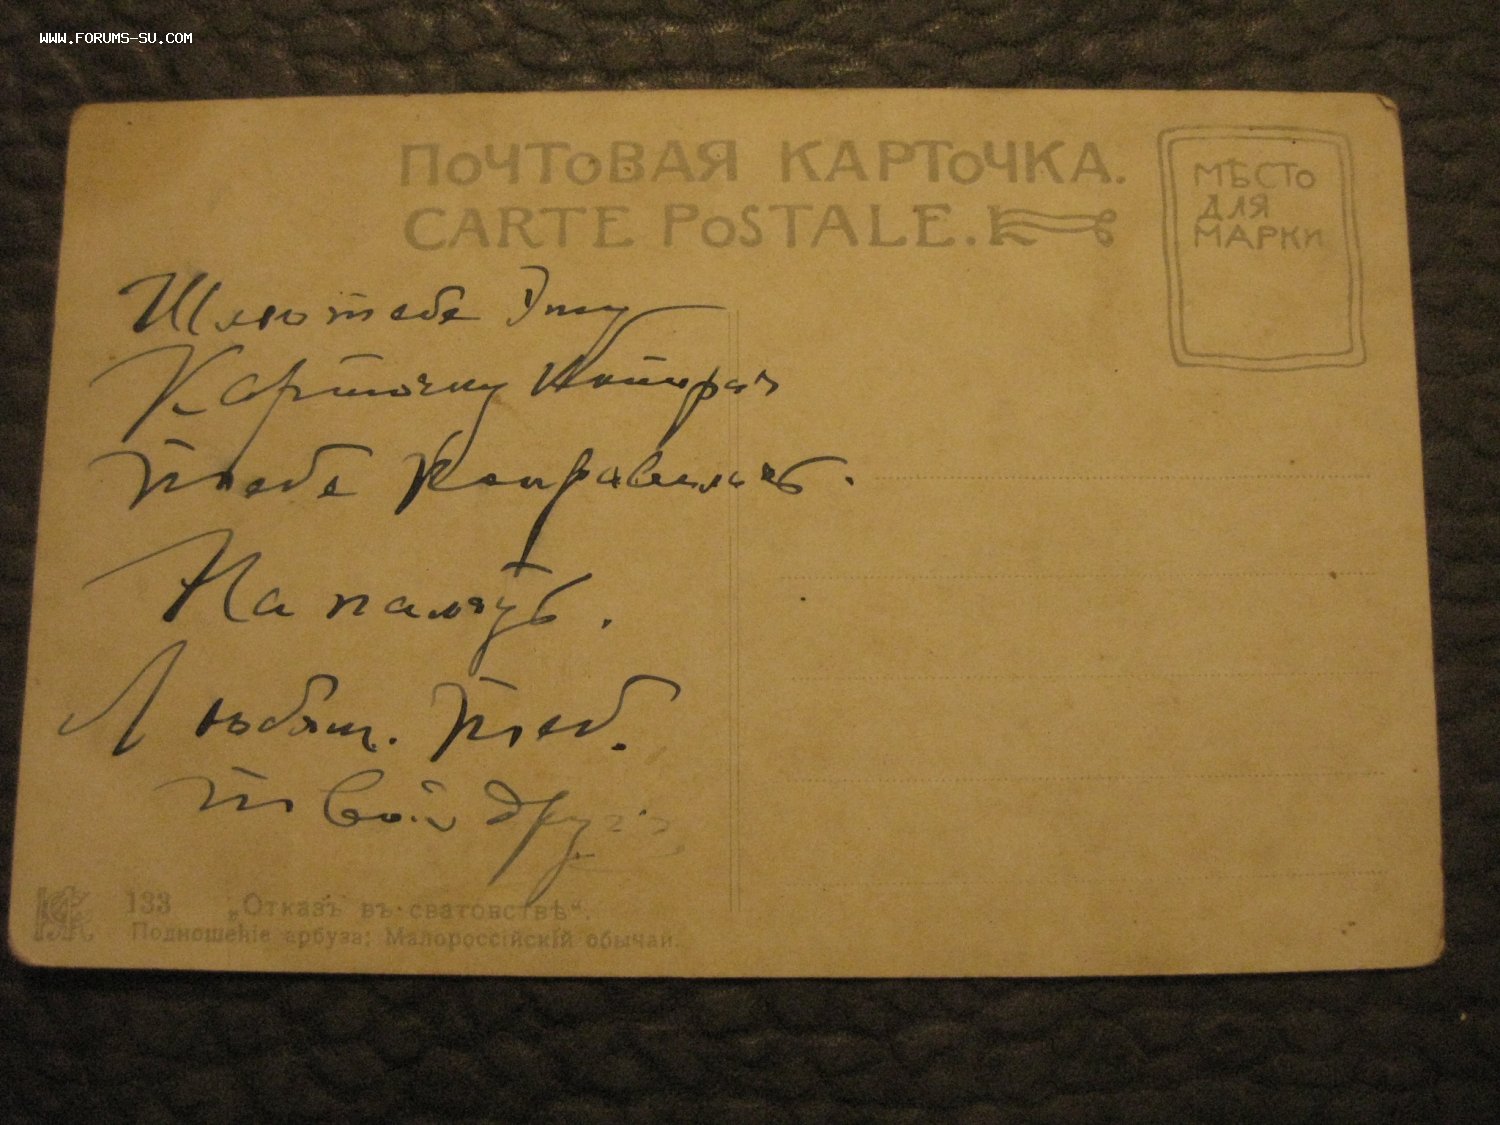 WWW.FORUMS-SU.COM
ПОЧТОВАЯ КАРТОЧКА.
CARTE POSTALE.
МѢСТО
ДЛЯ
МАРКИ
Шлю тебе эту
Карточку Которая
тебе Понравилась.
На память.
Любящ. теб.
твой друг
133 „Отказъ въ сватовствѣ“.
Подношенiе арбуза; Малороссiйскiй обычай.